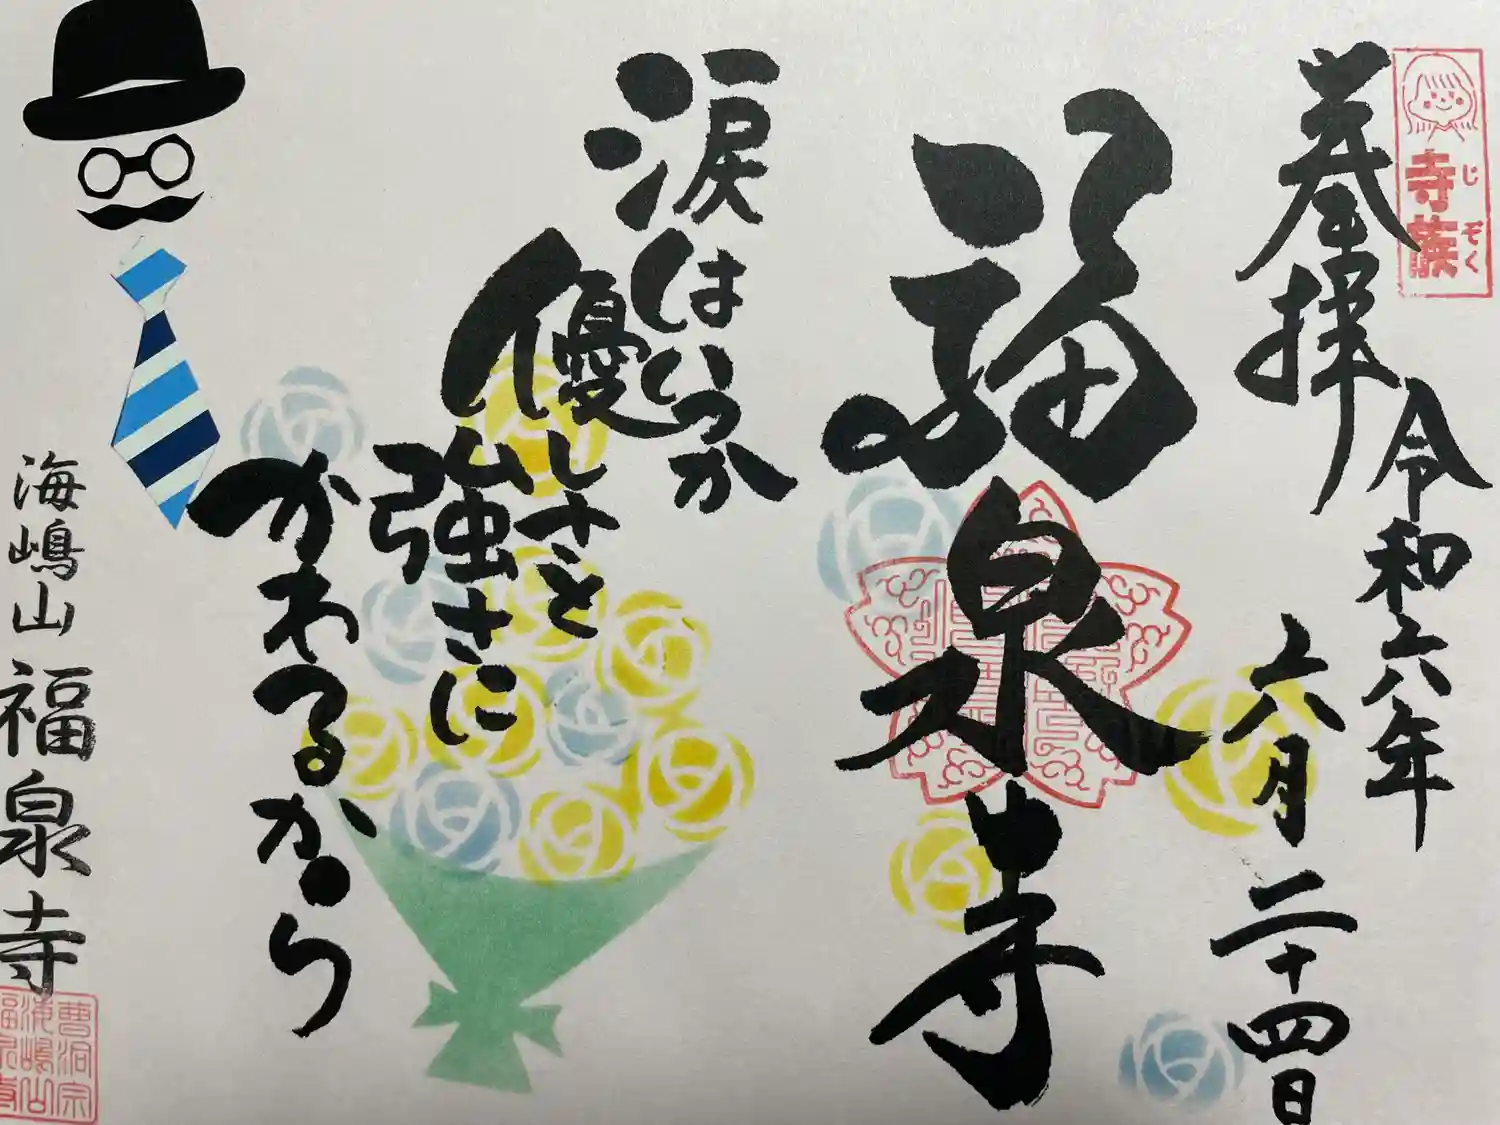 寺族
じぞく
奉拝
令和六年
六月二十四日
福泉寺
涙はいつか
優しさと
強さに
かわるから
海嶋山 福泉寺
曹洞宗
海嶋山
福泉寺